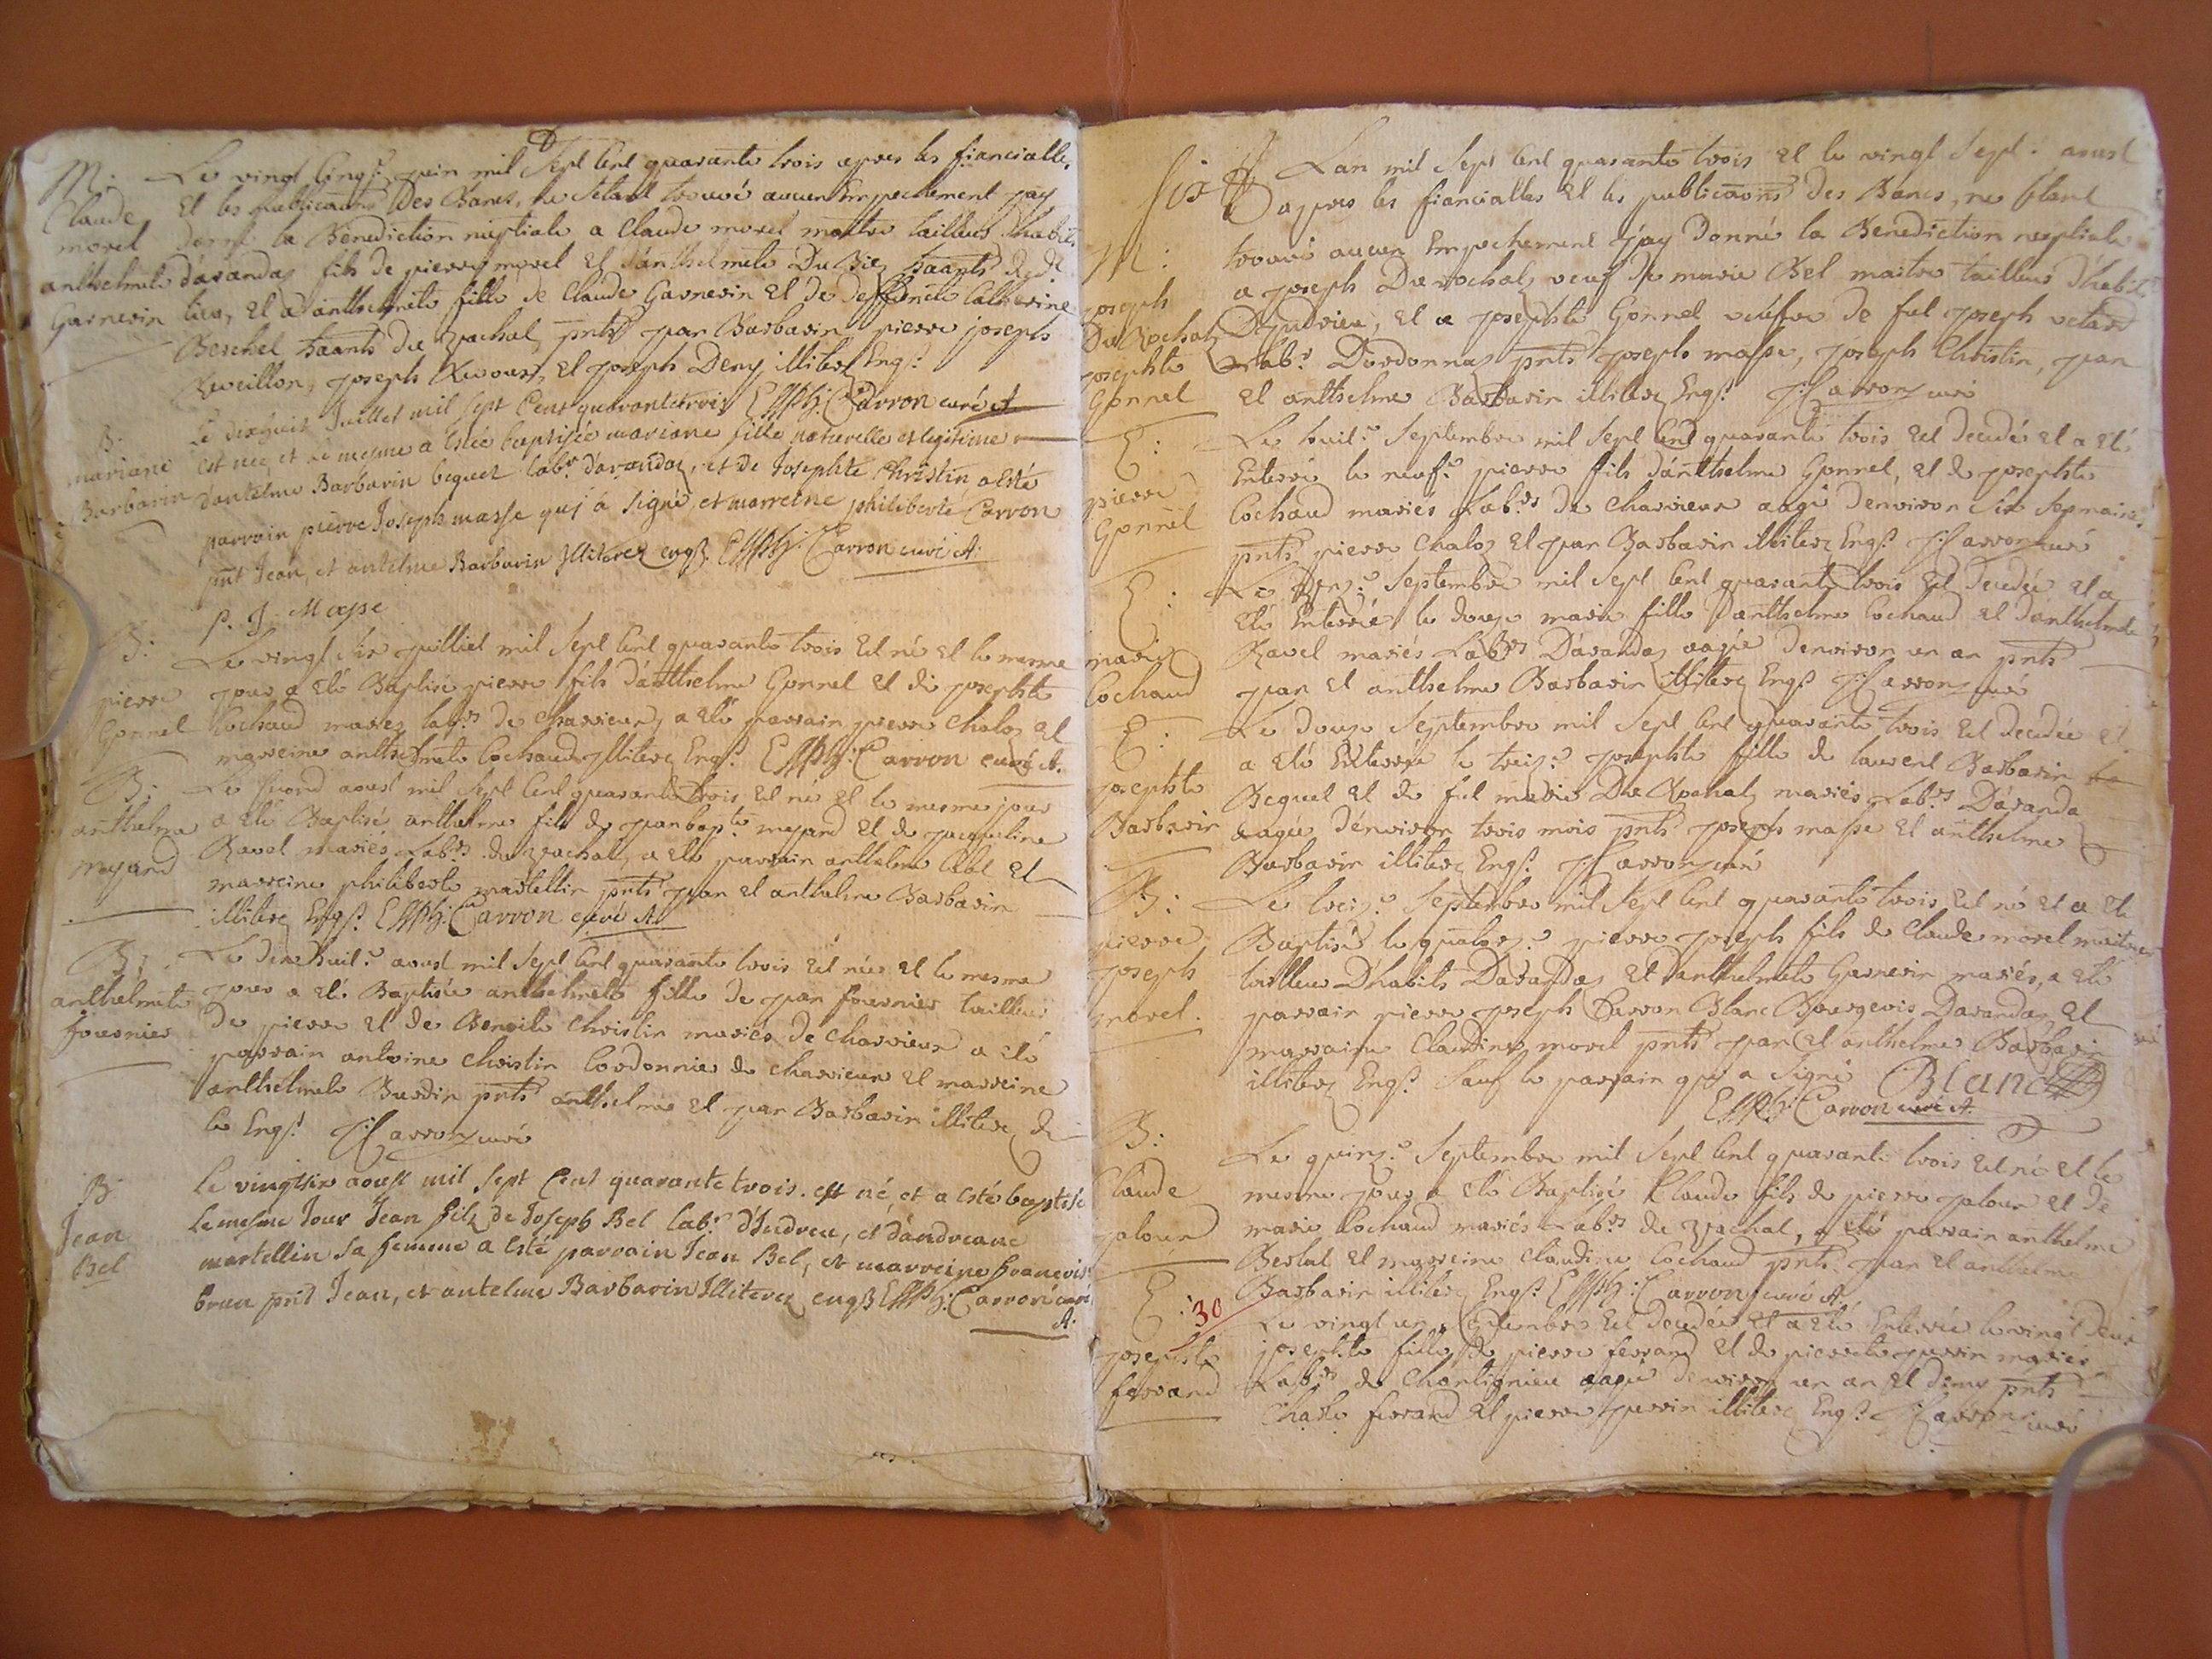 M: Le vingt Cinq.e juin mil Sept Cent quarante trois apres les fiancialle,
Claude Et les publications Des Bancs, ne Setant trouvé aucun Empechement jay
morel Donné la Benediction nuptiale a Claude morel maitre tailleur dhabit
anthelmete d'arandaz fils de pierre morel et d'anthelmete Du
Garnerin lieu, et a anthelmete fille de Claude Garnerin et de deffuncte Catherine
Beschel haants de rachat, pnts jean Barbarin pierre joseph
joseph et joseph Deny illiteré Enq.s
Carron curé A
B: Le dixhuit Juillet mil sept Cent quarante trois
mariane Est née, et le mesme a Estée baptisée mariane fille naturelle et legitime
Barbarin d'antelme Barbarin bequet lab.r d'arandaz, et de Josephte Christin a esté
parrain pierre Joseph masse quj a signé, et marreine philiberte Carron
pnt Jean, et antelme Barbarin Illiterez enqs. Carron curé A:
P. J. Masse
B: Le vingt six juilliet mil Sept Cent quarante trois Est né et le mesme
pierre jour a eté Baptisé pierre fils d'anthelme Gonnel et de josephte
Gonnel Cochaud mariez lab.rs de Charvieux, a eté parrain pierre Chaloz et
marreine anthelmete Cochaud Illiterez Enqs. Carron curé A.
B: Le second aoust mil Sept Cent quarante trois Est né et le mesme jour
anthelme a eté Baptisé anthelme fils de jean bap.te mejand et de jacqueline
mejand Ravel mariés Lab.rs de rachat, a eté parrain anthelme et
marreine philiberte martellin pnts jean et anthelme Barbarin
illiterez Enqs. Carron curé A
B: Le dixhuit.e aoust mil Sept Cent quarante trois Est née et le mesme
anthelmete jour a eté Baptisée anthelmete fille de jean fournier tailleur
fournier De pierre et de Benoite Christin mariés de Charvieux a eté
parrain antoine Christin Cordonnier de Charvieux et marreine
anthelmete Burdin pnts anthelme et jean Barbarin illiterez de
ce Enqs. Carron curé
B: Le vingtsix aoust mil sept Cent quarante trois. est né et a esté baptisé
Jean le mesme Jour Jean filz de Joseph Bel lab.r d'Indrieu, et d'andreane
Bel martellin sa femme a esté parrain Jean Bel, et marreine francoise
brun pnt Jean, et antelme Barbarin Illiterez enqs Carron curé
A:
six Lan mil Sept Cent quarante trois et le vingt Sept. aoust
apres les fiancialles et les publications Des Bancs, ne setant
M: trouvé aucun Empechement j'ay Donné la Benediction nuptiale
joseph a joseph Du Rochat veuf de marie Bel maitre tailleur d'habit
Du Rochat D'Indrieu, et a josephte Gonnel veufve de fut joseph
josephte Lab.r D'ordonnaz pnts joseph masse, joseph Christin, jean
Gonnel et anthelme Barbarin illiterez Enqs. Carron curé
E: Le huit.e Septembre mil Sept Cent quarante trois Est decedé et a eté
pierre Enterré le neuf.e pierre fils d'anthelme Gonnel, et de josephte
Gonnel Cochaud mariés Lab.rs de Charvieux aagé denviron six semaines
pnts pierre Chaloz et jean Barbarin illiterez Enqs. Carron curé
E: Le Septembre mil Sept Cent quarante trois Est decedée et a
eté Enterrée le douze marie fille d'anthelme Cochaud et d'anthelmete
marie Ravel mariés Lab.rs D'arandaz aagée denviron un an pnts
Cochaud jean et anthelme Barbarin illiterez Enqs Carron curé
E: Le douze Septembre mil Sept Cent quarante trois Est decedée et
a eté Enterrée le treiz.e josephte fille de laurent Barbarin
josephte Bequet et de fut marie Du Rochat mariés Lab.rs D'aranda
Barbarin aagée d'environ trois mois pnts joseph masse et anthelme
Barbarin illiterez Enqs. Carron curé
B: Le treiz.e Septembre mil Sept Cent quarante trois Est né et a eté
pierre Baptisé le quatorz.e pierre joseph fils de Claude morel maitre
joseph tailleur D'habits Darandaz et d'anthelmete Garnerin mariés, a eté
morel. parrain pierre joseph Carron Blanc Bourgeois Darandaz et
marraine Claudine morel pnts jean et anthelme Barbarin
illiterez Enqs. Sauf le parrain quj a signé Blanc
Carron curé A.
B: Le quinz.e Septembre mil Sept Cent quarante trois Est né et le
Claude mesme jour a eté Baptizé Claude fils de pierre jalour et de
jalour marie Cochaud mariés Lab.rs de rachat, a eté parrain anthelme
et marreine Claudine Cochaud pnts jean et anthelme
Barbarin illiterez Enqs. Carron curé A
E: 30 Le vingt un Septembre Est decedée et a eté Enterrée le vingt deux
josephte josephte fille de pierre ferrand et de pierrete mariés
ferrand Lab.rs de Chantignieu aagée denviron un an et demy pnts
Charle ferrand et pierre illiterez Enqs. Carron curé